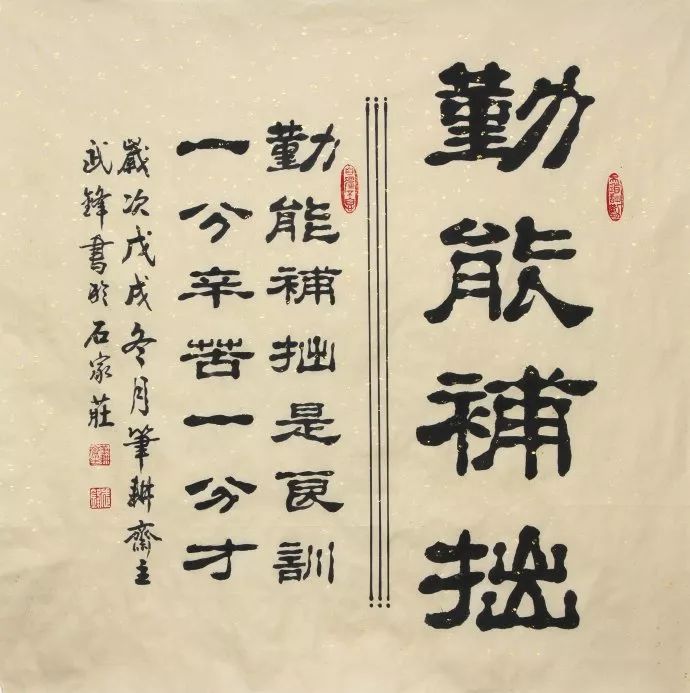 勤能補拙
勤能補拙是良訓
一分辛苦一分才
歲次戊戌冬月筆耕齋主
武鋒書於石家莊